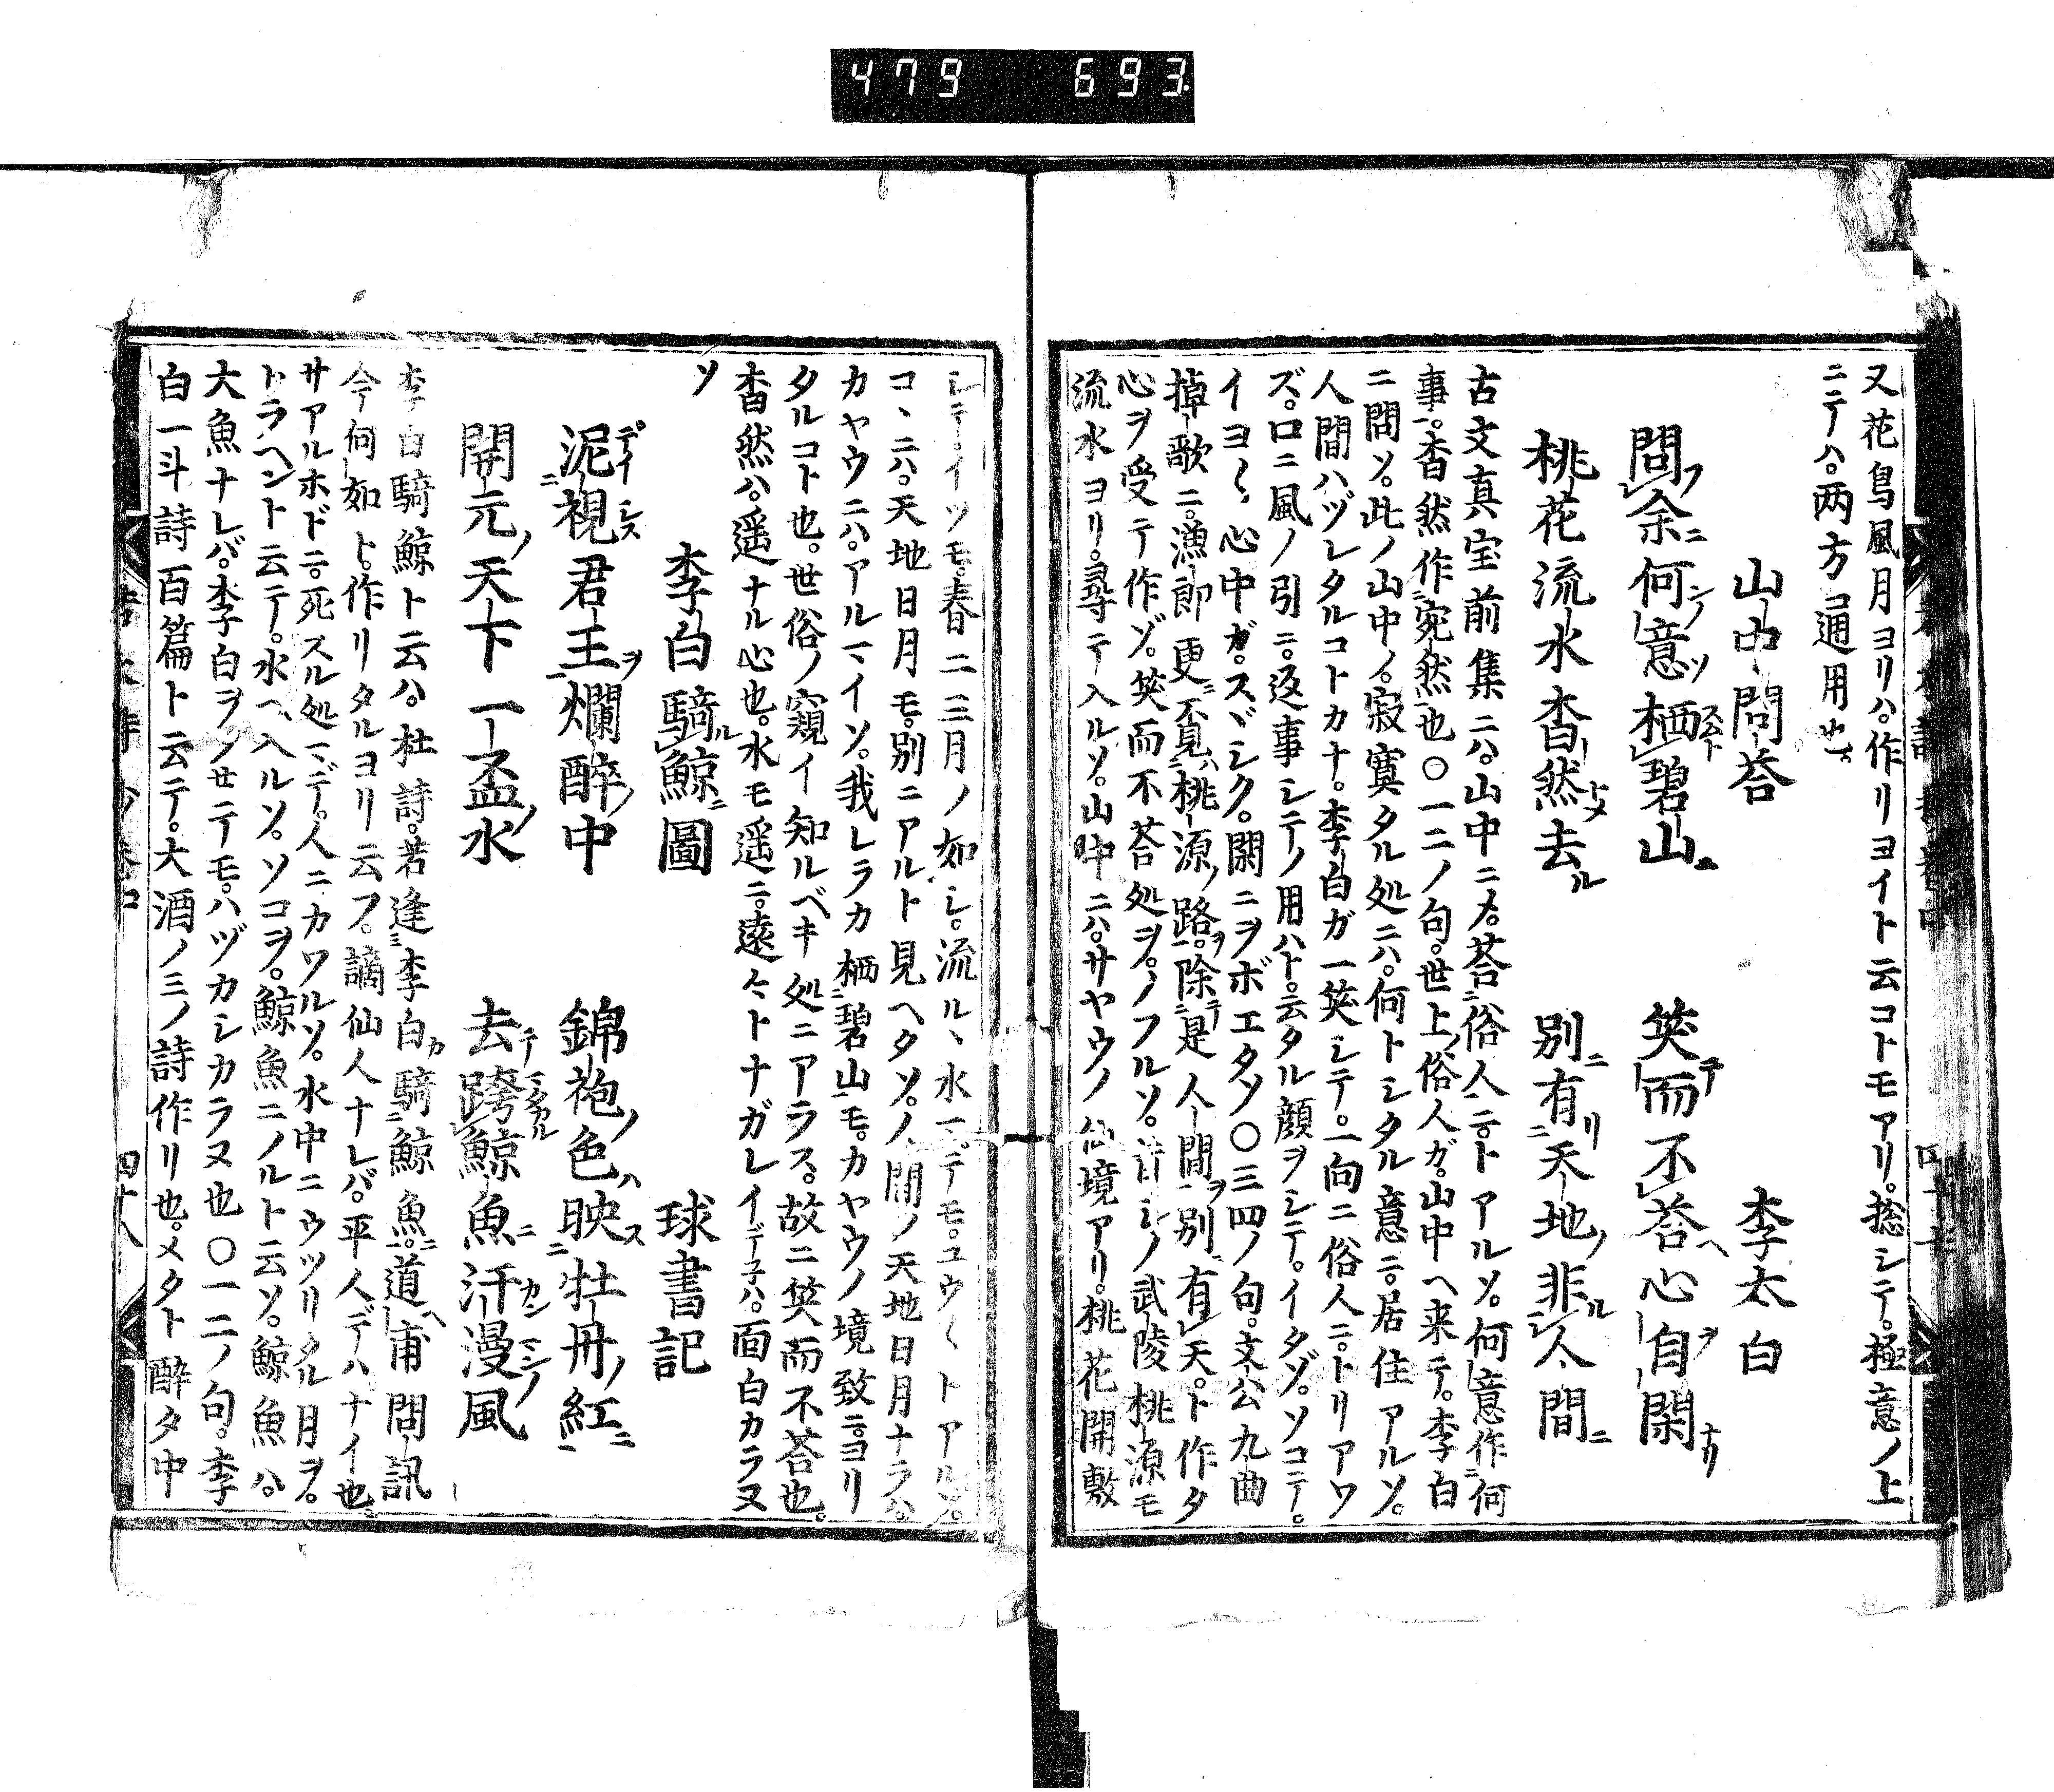 479 693
又花鳥風月ヨリハ。作リヨイト云コトモアリ。捴シテ。極意ノ上
ニテハ。两方通用也。
山中問荅 李太白
問フ余ニ何ノ意ソ栖スムト碧山ニ 笑テ而不荅ヘ心自ヲ閑ナリ
桃花流水杳然トメ去ル 別ニ有リ天地ノ非ル人間ニ
古文真宝前集ニハ。山中ニメ。荅俗人ニ。トアルソ。何意作何
事。杳然作宛然也。〇一二ノ句。世上ノ俗人ガ。山中ヘ来テ。李白
ニ問ソ。此ノ山中ノ。寂寞タル処ニハ。何トシタル意ニ。居住アルソ。
人間ハヅレタルコトカナ。李白ガ一笑シテ。一向ニ俗人ニ。トリアワ
ズ。口ニ風ノ引ニ。返事シテノ用ハト。云タル顔ヲシテ。イタゾ。ソコテ。
イヨ〱心中ガ。スヾシク。閑ニヲボエタソ〇三四ノ句。文公九曲
掉歌ニ。漁郎更覓桃源ノ路ヲ。除テ是人間ヲ別有天。ト作タ
心ヲ受テ作ゾ。笑而不荅処ヲ。ノフルソ。計シノ武陵桃源モ
流水ヨリ。尋テ入ルソ。山中ニハ。サヤウノ仙境アリ。桃花開敷
シテ。イツモ。春二三月ノ如シ。流ルヽ水マデモ。ユウ〱トアルソ。
コヽニハ。天地日月モ。別ニアルト見ヘタソ。人間ノ天地日月ナラハ。
カヤウニハ。アルマイソ。我レラカ栖碧山モ。カヤウノ境致ニ。ヨリ
タルコト也。世俗ノ窺イ知ルベキ処ニアラス。故ニ笑而不荅也。
杳然ハ。遥ナル心也。水モ遥ニ。遠々トナガレイデ子ハ。面白カラヌ
ソ
李白騎ル鯨ニ圖 球書記
泥デイ視シス君王ヲ爛醉ノ中 錦袍ノ色ハ映ス牡丹ノ紅ニ
開元ノ天下一盃ノ水 去テ跨マタカル鯨魚ニ汗カン漫マンノ風
李白騎鯨ト云ハ。杜詩。若逢李白カ騎鯨魚ニ。道ヘ甫問訊
今何如ト。作リタルヨリ云フ。謫仙人ナレバ。平人デハ。ナイ也。
サアルホドニ。死スル処マデ。人ニカワルソ。水中ニウツリタル月ヲ。
トラヘント云テ。水ヘ入ルソ。ソコヲ。鯨魚ニノルト云ソ。鯨魚ハ。
大魚ナレバ。李白ヲノセテモ。ハヅカシカラヌ也〇一二ノ句。李
白一斗詩百篇ト云テ。大酒ノミノ詩作リ也。メタト醉タ中
四十八